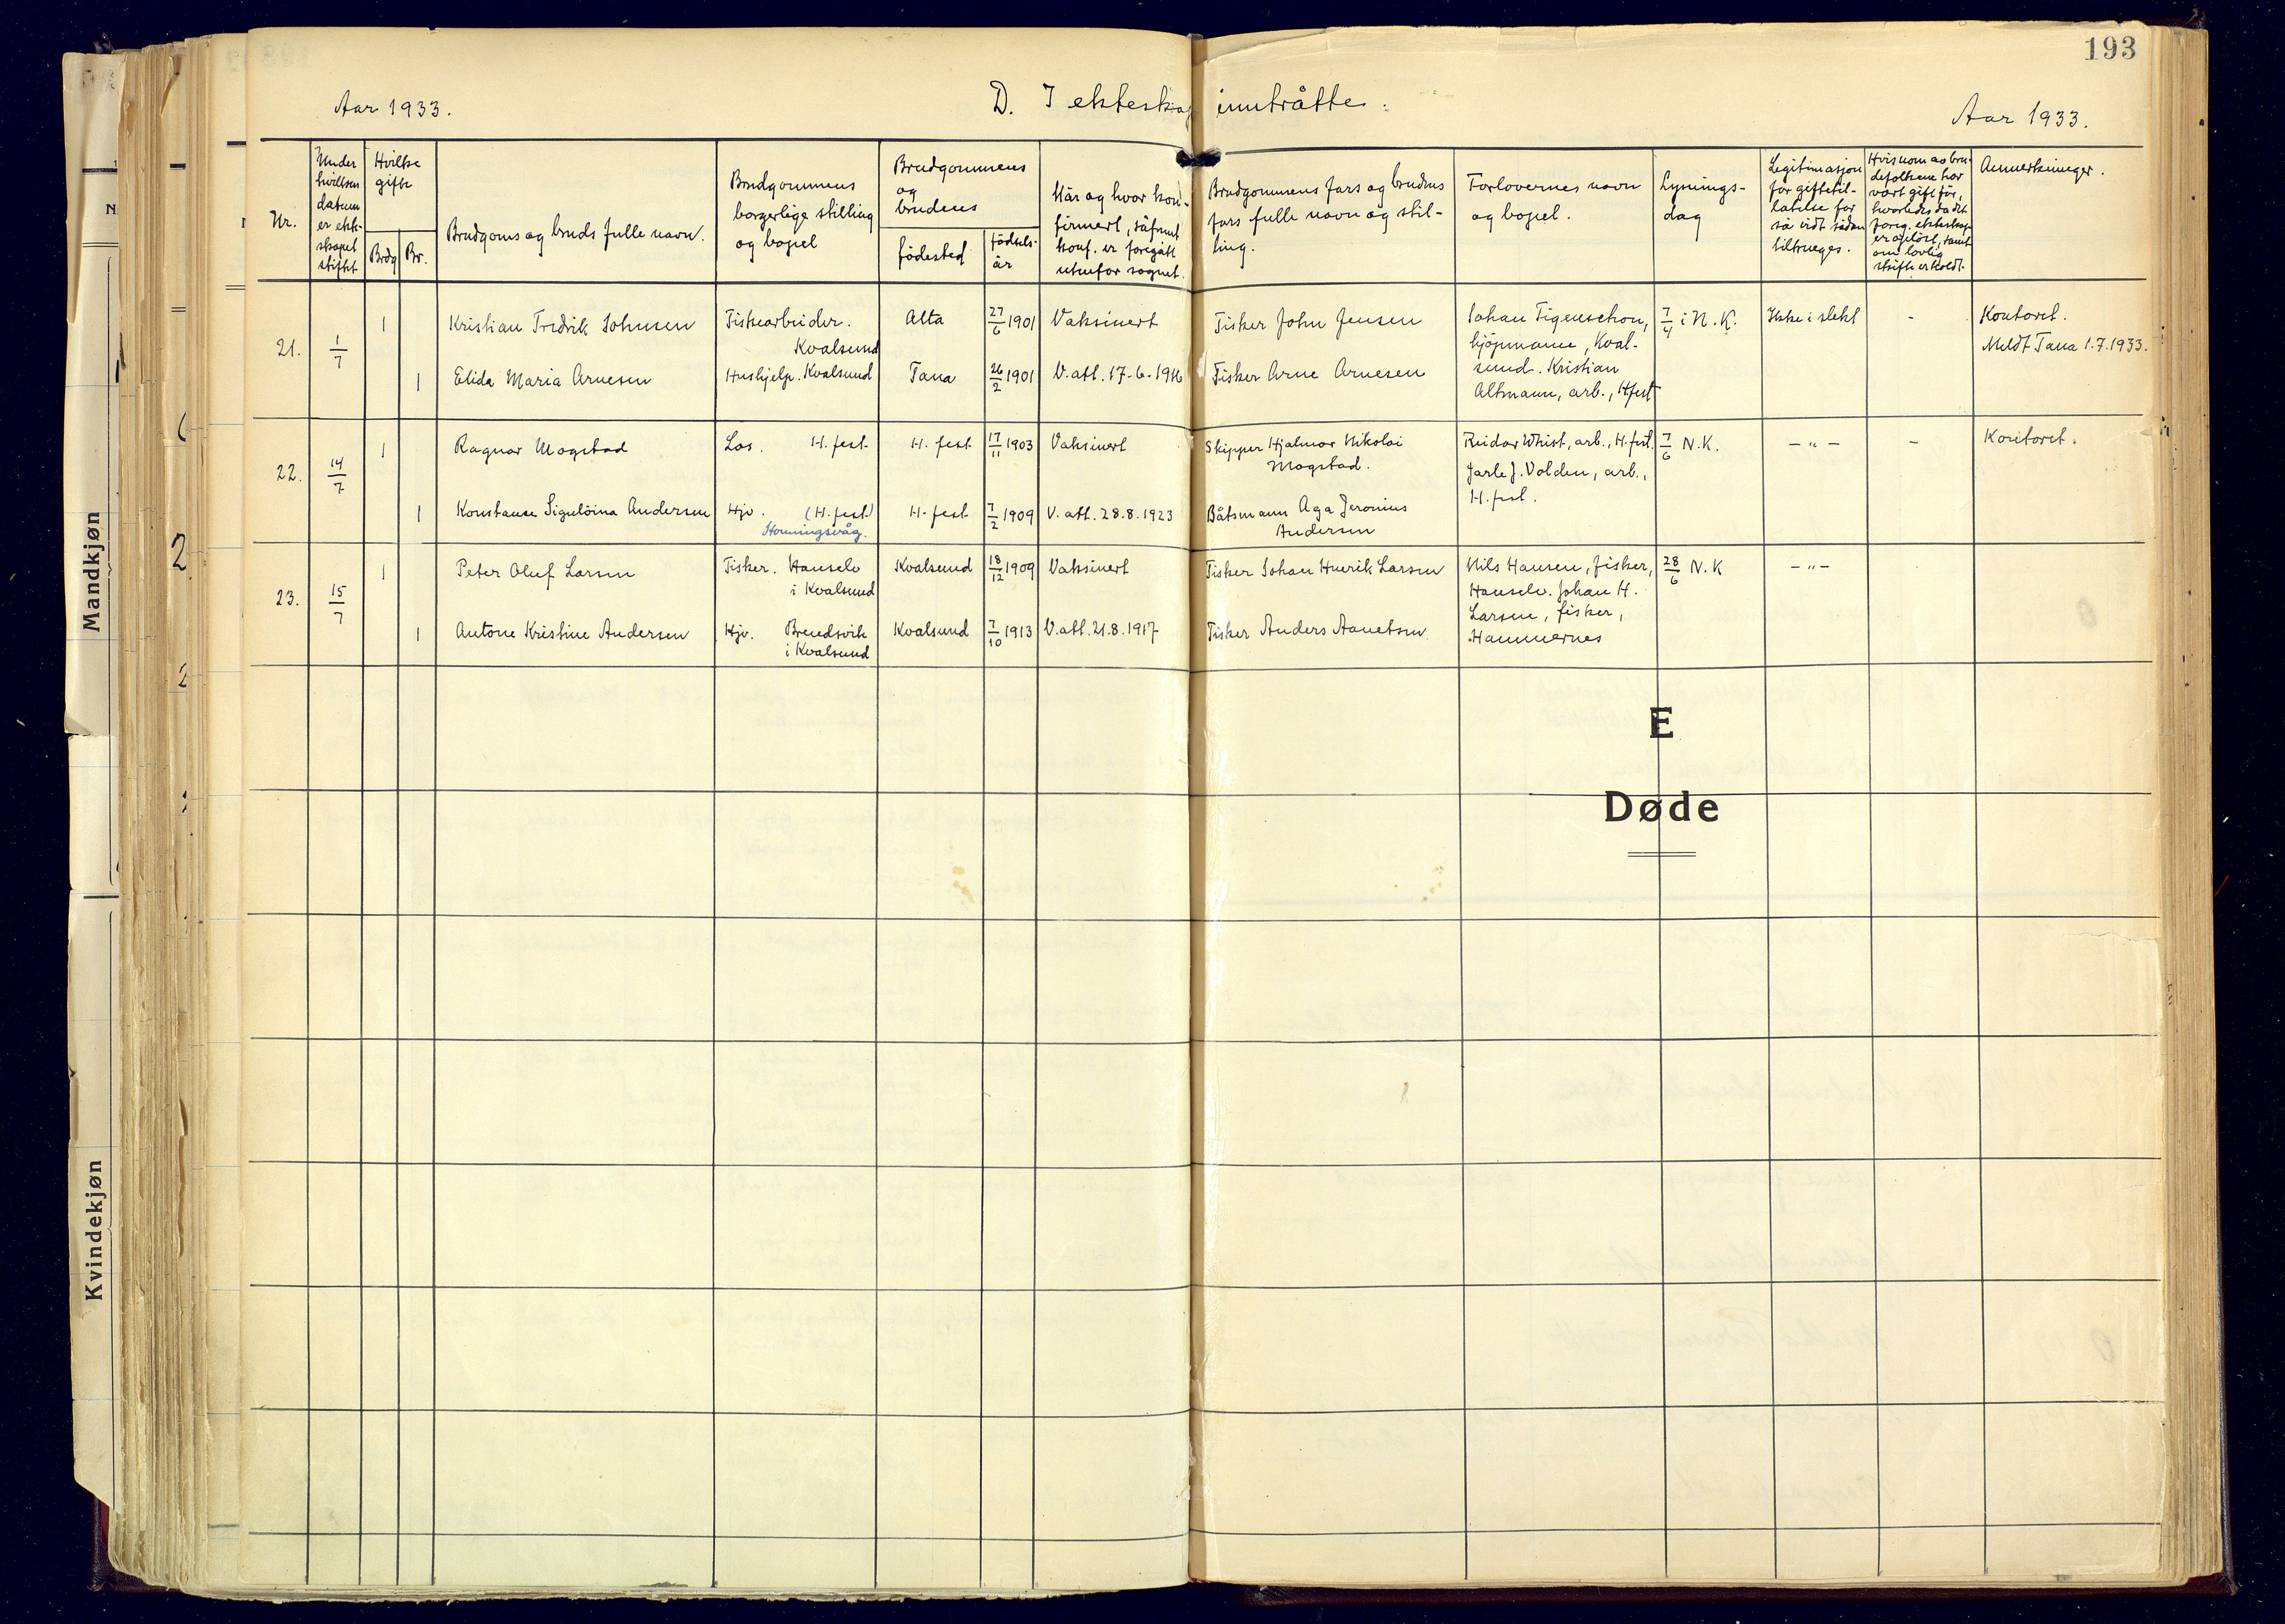 193
Aar 1933.
D. I ekteskap inntråtte.
Aar 1933.
Nr.
Under
hvilken
datum
er ekte-
skapet
stiftet
Hvilke
gifte
Brdg
Br.
Brudgoms og bruds fulle navn.
Brudgommens
borgerlige stilling
og bopel
Brudgommens
og
brudens
fødested
fødsels-
år
Når og hvor kon-
firmert, såfremt
konf. er foregått
utenfor sognet.
Brudgommens fars og brudens
fars fulle navn og stil-
ling.
Forlovernes navn
og bopel.
Lysnings-
dag
Legitimasjon
for giftetil-
latelse for
så vidt sådan
tiltrenges.
Hvis nom av bru-
defolkene har
vært gift før,
hvorledes da det
foreg. ekteskap
er opløst, samt
om lovlig
skifte er holdt.
Anmerkninger.
21.
1/7
1
Kristian Fredrik Johnsen
Fiskearbeider.
Kvalsund
Alta
27/6 1901
Vaksinert
Fisker John Jensen
Johan Figenschou,
kjøpmann, Kval-
sund. Kristian
Altmann, arb., H.fest
7/4 i N.K.
Ikke i slekt
-
Kontoret.
Meldt Tana 1.7.1933.
1
Elida Maria Arnesen
Hushjelp. Kvalsund
Tana
26/2 1901
V. att. 17-6-1916
Fisker Arne Arnesen
22.
14/7
1
Ragnar Mogstad
Los. H. fest.
H. fest
17/11 1903
Vaksinert
Skipper Hjalmar Nikolai
Mogstad.
Reidar Whist, arb., H.fest.
Jarle J. Volden, arb.,
H. fest.
7/6 N.K.
- " -
-
Kontoret.
1
Konstanse Andersen
Hjv. (H. fest.)
Honningsvåg.
H. fest
7/2 1909
V. att. 28.8.1923
Båtsmann Aga Jeronius
Andersen
23.
15/7
1
Peter Oluf Larsen
Fisker. Hanselv
i Kvalsund
Kvalsund
18/12 1909
Vaksinert
Fisker Johan Henrik Larsen
Nils Hansen, fisker,
Hanselv. Johan H.
Larsen, fisker,
Hammernes
28/6 N.K
- " -
1
Antone Kristine Andersen
Hjv. Brendsvik
i Kvalsund
Kvalsund
7/10 1913
V. att. 21.8.1917
Fisker Anders
E
Døde
Mandkjøn
Kvindekjøn